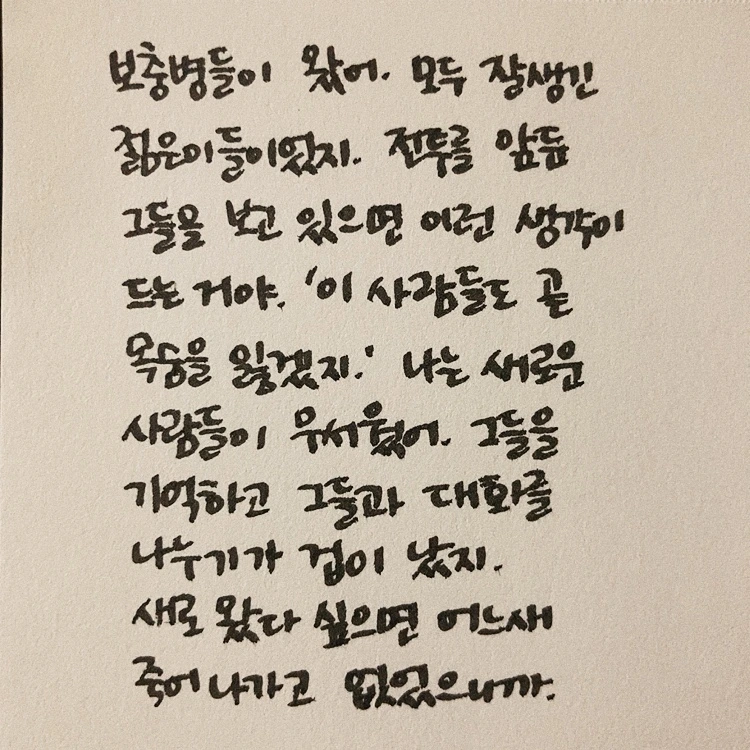 보충병들이 왔어. 모두 잘생긴
젊은이들이었지. 전투를 앞둔
그들을 보고 있으면 이런 생각이
드는 거야. '이 사람들도 곧
목숨을 잃겠지.' 나는 새로운
사람들이 무서웠어. 그들을
기억하고 그들과 대화를
나누기가 겁이 났지.
새로 왔다 싶으면 어느새
죽어나가고 없었으니까.